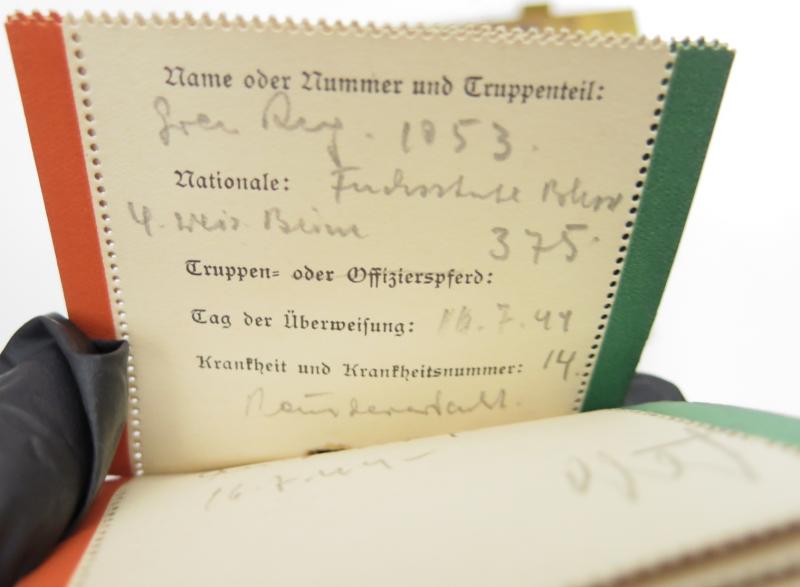 Name oder Nummer und Truppenteil:
Gren Reg. 1053.
Nationale: Fuchsstute Bless
4. weis Beine 375
Truppen- oder Offizierspferd:
Tag der Überweisung: 16.7.44
Krankheit und Krankheitsnummer: 14.
16.7.44